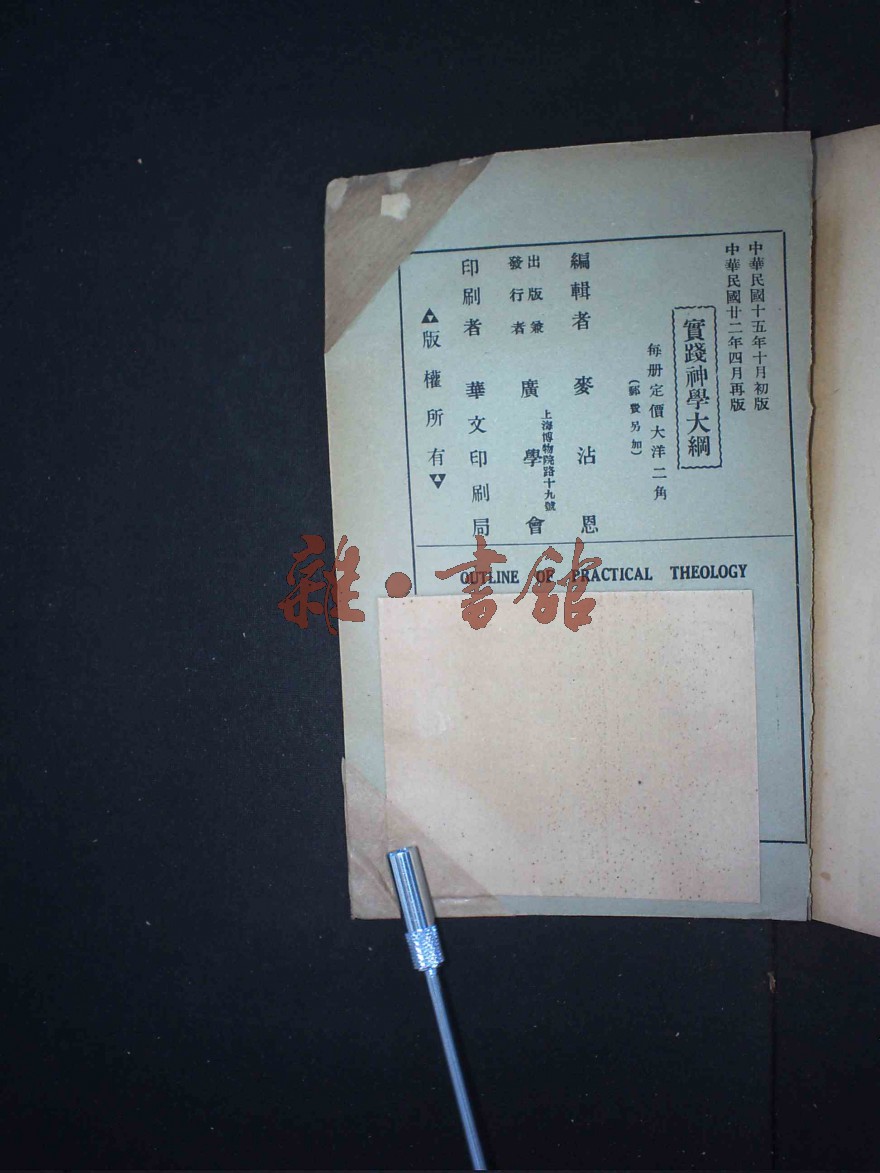 中華民國十五年十月初版
中華民國廿二年四月再版
實踐神學大綱
每册定價大洋二角
(郵費另加)
編輯者 麥沾恩
出版兼
發行者
上海博物院路十九號
廣學會
印刷者 華文印刷局
版權所有
OUTLINE OF PRACTICAL THEOLOGY
雜·書館